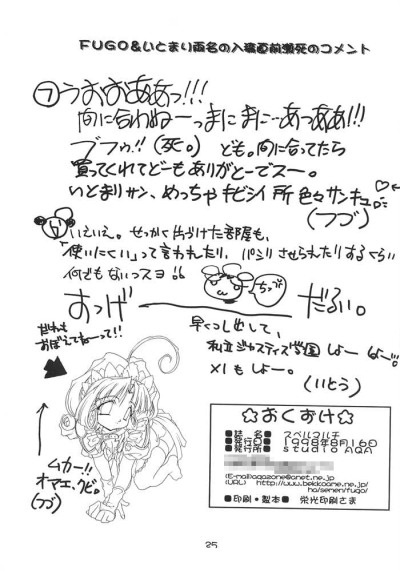 FUGO&いとまり両名の入稿直前瀕死のコメント
フ うおおあぁっ!!!
間に合わねーっまにまに…あっああ!!!
ブフゥ!!(死。) ども。間に合ってたら
買ってくれてどーもありがとーでスー。
いとまりサン、めっちゃキビシイ所色々サンキュ♡
(フづ)
いえいえ。せっかく片づけた部屋も、
「使いにくい」って言われたり、パシリさせられたりするくらい
何でもないっスヨ!!
おっげ
だるい。
ちっづ
だれも
おぼえてねーって!!
早くつし出して、
私立ジャスティス学園しよーよー
×1もしよー。
(いとう)
ムカー!!
オマエ、クビ。
(フづ)
☆おくづけ☆
■誌 名■ スペルマルチ
■発行日■ 1998年8月16日
■発行所■ studio AQA
(E-mail)aqazone@anet.ne.jp
(URL) http://www.bekkoame.ne.jp/
ho/semen/fugo/
■印刷・製本■ 栄光印刷さま
25